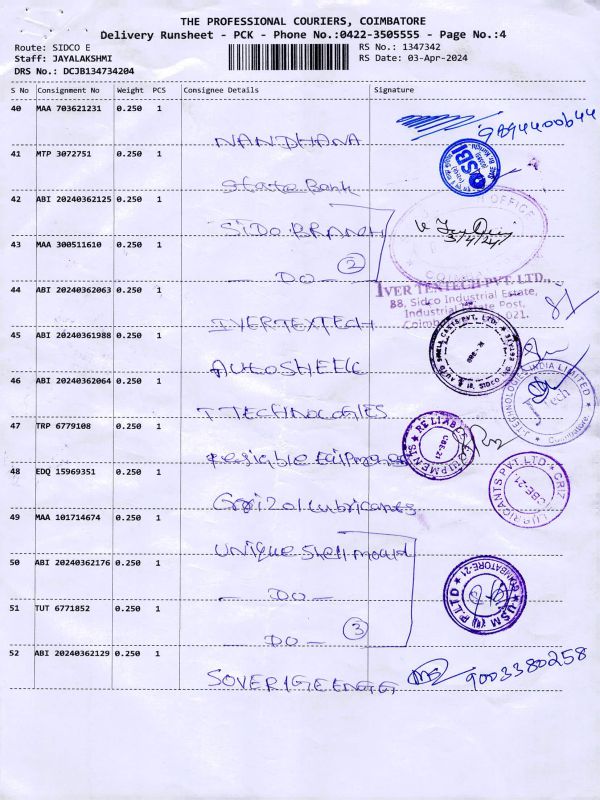 THE PROFESSIONAL COURIERS, COIMBATORE
Delivery Runsheet - PCK - Phone No.:0422-3505555 - Page No.:4
Route: SIDCO E
Staff: JAYALAKSHMI
DRS No.: DCJB134734204
RS No.: 1347342
RS Date: 03-Apr-2024
S No Consignment No Weight PCS Consignee Details Signature
40 MAA 703621231 0.250 1 NANDHANA 9894400644
41 MTP 3072751 0.250 1 State Bank SBI
42 ABI 20240362125 0.250 1 SIDO BRANCH 3/4/24
43 MAA 300511610 0.250 1 — DO — 2
IVER TEXTECH PVT. LTD.,
88, Sidco Industrial Estate,
Industrial Estate Post,
021.
44 ABI 20240362063 0.250 1 IVERTEXTECH
45 ABI 20240361988 0.250 1 AUTOSHELL
46 ABI 20240362064 0.250 1 T TECHNOLOGIES
INDIA LIMITED
Coimbatore
47 TRP 6779108 0.250 1
RELIABLE EQUIPMENTS
CBE-21
48 EDQ 15969351 0.250 1 Grizol Lubricants
CRIZ LUBRICANTS PVT. LTD
CBE-21
49 MAA 101714674 0.250 1 UNIQUE Shell mould
50 ABI 20240362176 0.250 1 — DO —
USM P.LTD
COIMBATORE-21
51 TUT 6771852 0.250 1 — DO — 3
52 ABI 20240362129 0.250 1 SOVERIGE ENGG 9003380258